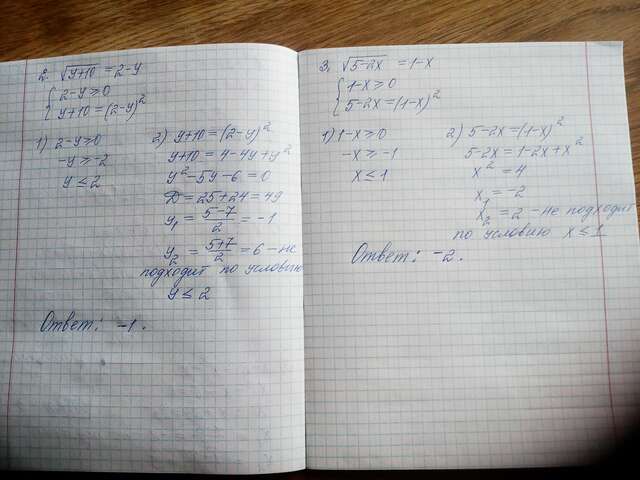 2. √(y+10) = 2-y
{ 2-y ≥ 0
{ y+10 = (2-y)²
1) 2-y ≥ 0
-y ≥ -2
y ≤ 2
2) y+10 = (2-y)²
y+10 = 4-4y+y²
y²-5y-6=0
D = 25+24 = 49
y₁ = (5-7)/2 = -1
y₂ = (5+7)/2 = 6 - не
подходит по условию
y ≤ 2
Ответ: -1.
3. √(5-2x) = 1-x
{ 1-x ≥ 0
{ 5-2x = (1-x)²
1) 1-x ≥ 0
-x ≥ -1
x ≤ 1
2) 5-2x = (1-x)²
5-2x = 1-2x+x²
x² = 4
x₁ = -2
x₂ = 2 - не подходит
по условию x ≤ 1
Ответ: -2.